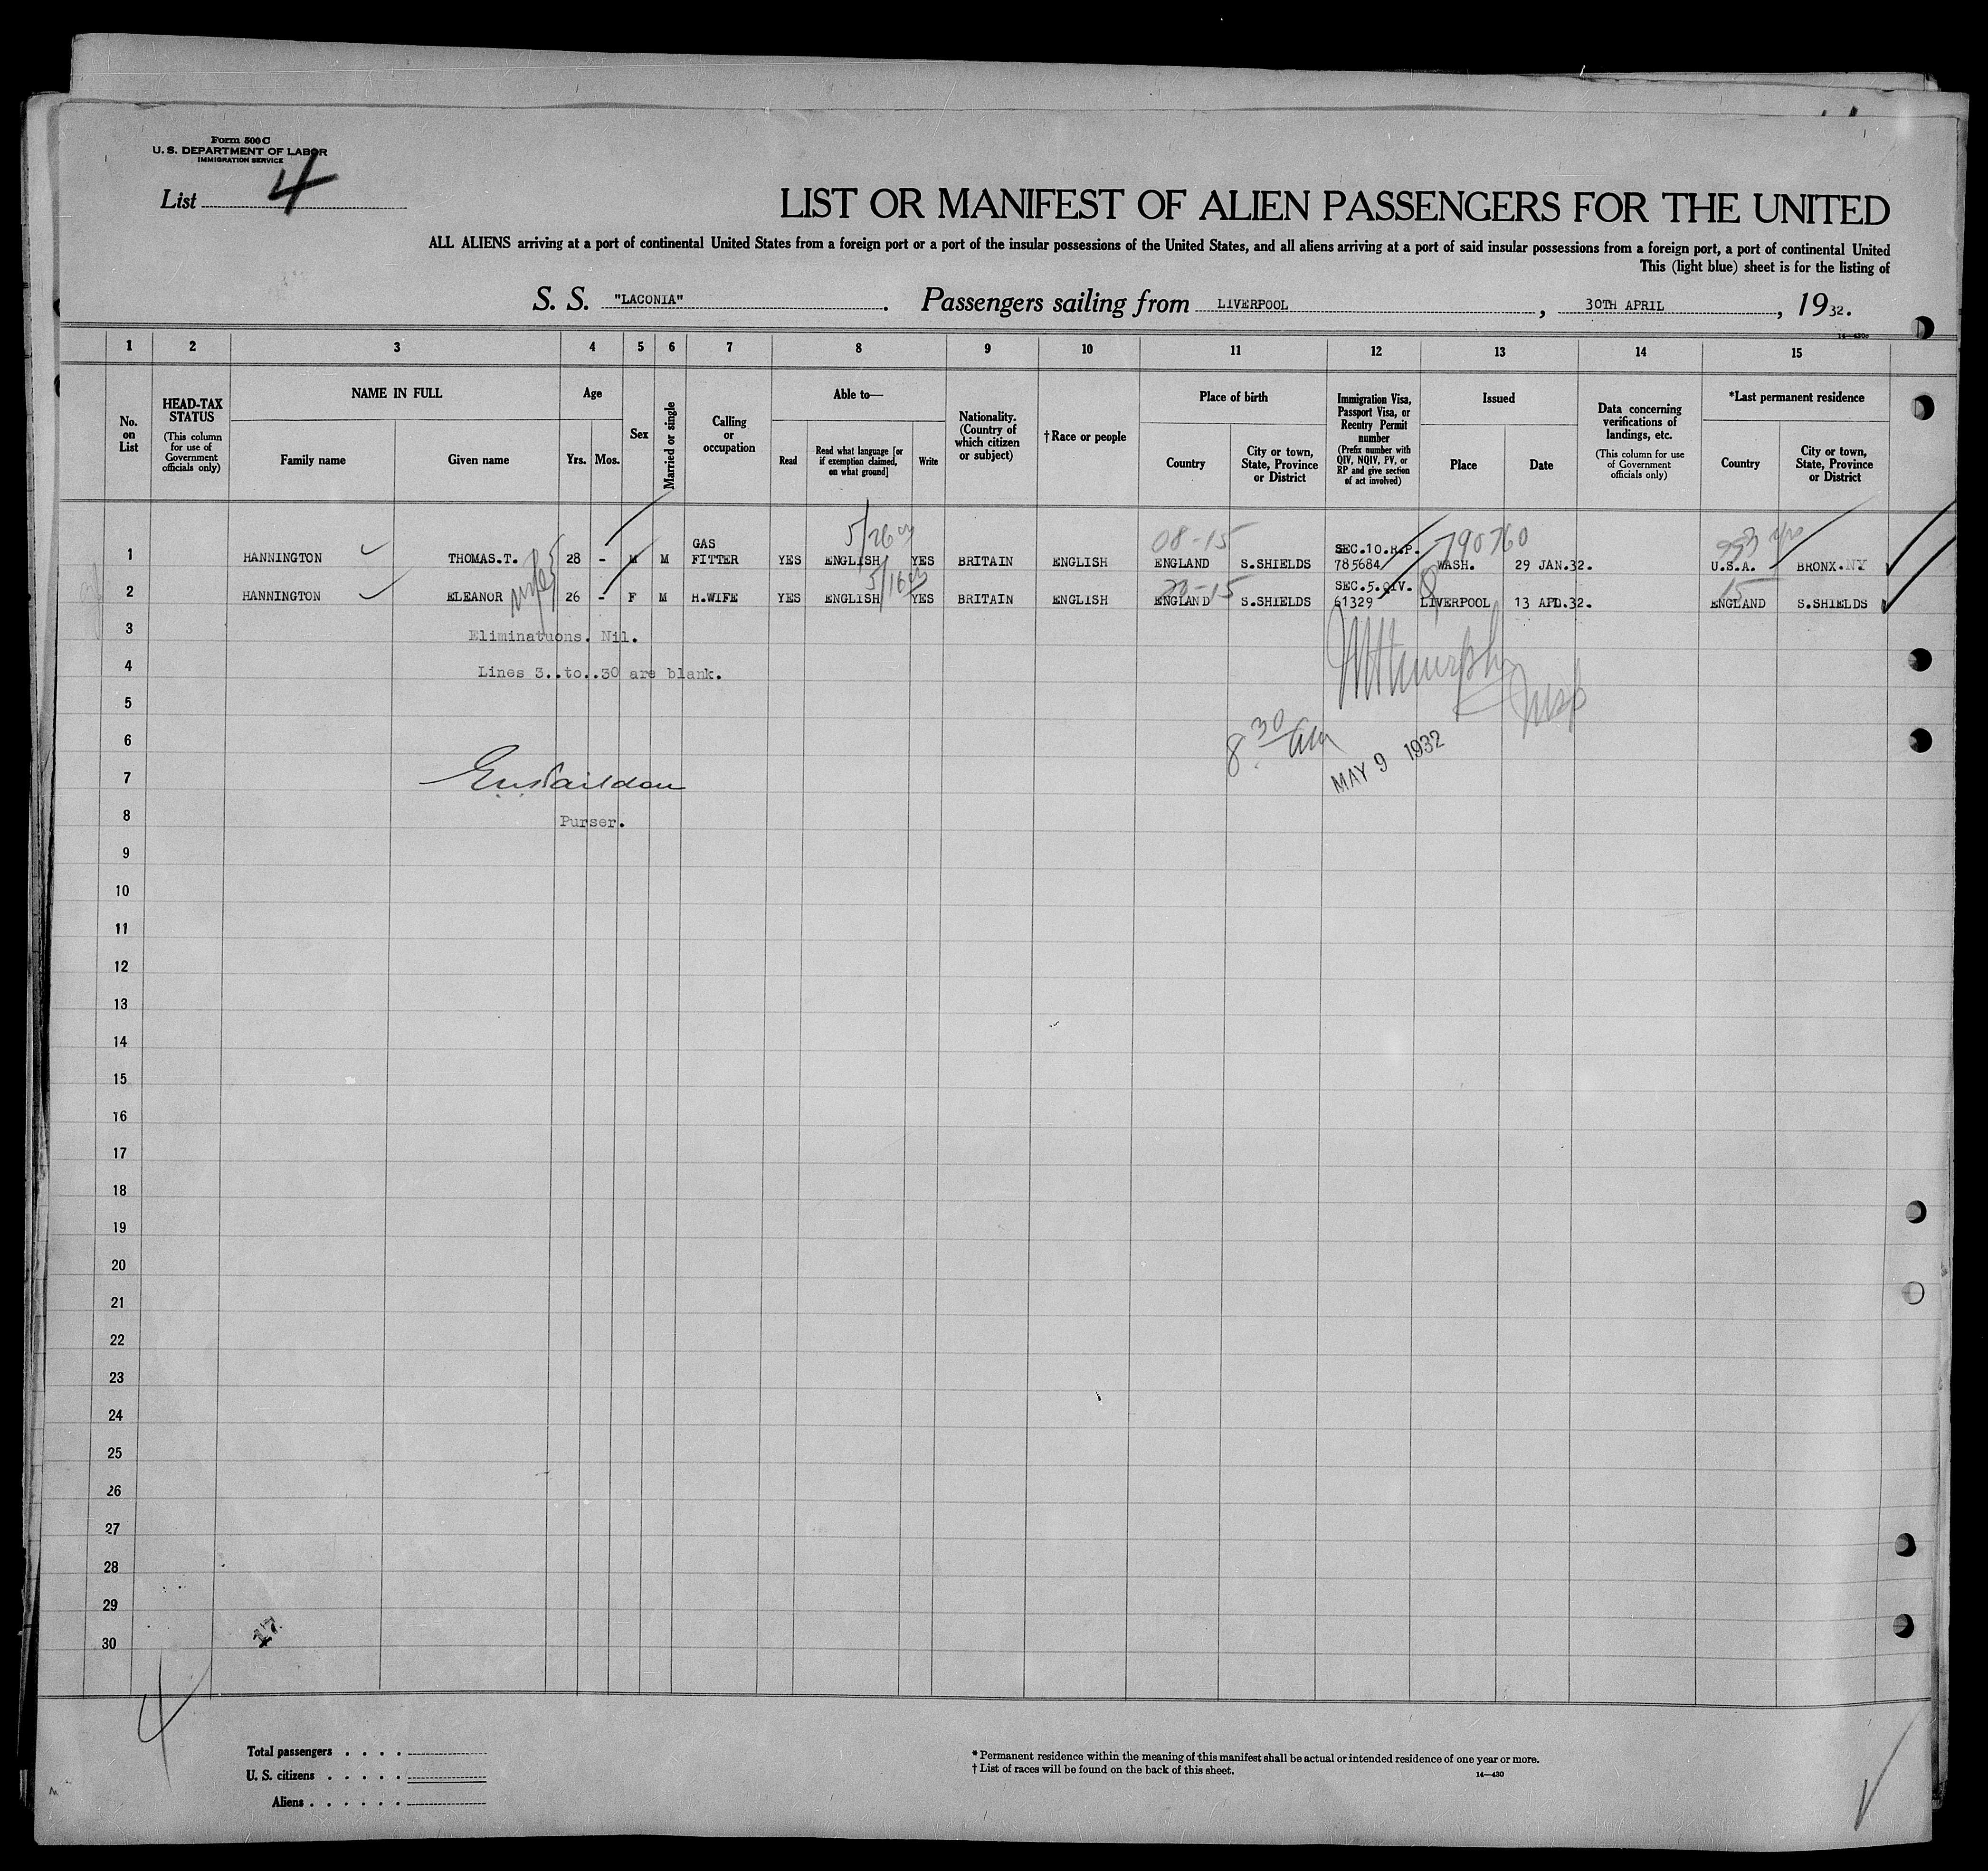 Form 500 C
U. S. DEPARTMENT OF LABOR
IMMIGRATION SERVICE
List 4
LIST OR MANIFEST OF ALIEN PASSENGERS FOR THE UNITED
ALL ALIENS arriving at a port of continental United States from a foreign port or a port of the insular possessions of the United States, and all aliens arriving at a port of said insular possessions from a foreign port, a port of continental United
This (light blue) sheet is for the listing of
S. S. "LACONIA". Passengers sailing from LIVERPOOL, 30TH APRIL, 1932.
14—430c
1 2 3 4 5 6 7 8 9 10 11 12 13 14 15
No. on List
HEAD-TAX STATUS (This column for use of Government officials only)
NAME IN FULL
Family name
Given name
Age
Yrs. Mos.
Sex
Married or single
Calling or occupation
Able to—
Read
Read what language [or if exemption claimed, on what ground]
Write
Nationality. (Country of which citizen or subject)
†Race or people
Place of birth
Country
City or town, State, Province or District
Immigration Visa, Passport Visa, or Reentry Permit number (Prefix number with QIV, NQIV, PV, or RP and give section of act involved)
Issued
Place
Date
Data concerning verifications of landings, etc. (This column for use of Government officials only)
*Last permanent residence
Country
City or town, State, Province or District
5/26 08-15 790760
1 HANNINGTON THOMAS.T. 28 - M M GAS FITTER YES ENGLISH YES BRITAIN ENGLISH ENGLAND S.SHIELDS SEC.10.R.P. 785684 WASH. 29 JAN.32. U.S.A. BRONX. N.Y.
5/16 15
2 HANNINGTON ELEANOR 26 - F M H.WIFE YES ENGLISH YES BRITAIN ENGLISH ENGLAND S.SHIELDS SEC.5.QIV. 61329 LIVERPOOL 13 APL.32. ENGLAND S.SHIELDS
3 Eliminatuons. Nil.
4 Lines 3..to..30 are blank.
5
6 8 30 am MAY 9 1932
7
8 Purser.
9
10
11
12
13
14
15
16
17
18
19
20
21
22
23
24
25
26
27
28
29
30
17
4
Total passengers . . . .
U. S. citizens . . . . .
Aliens . . . . . .
* Permanent residence within the meaning of this manifest shall be actual or intended residence of one year or more.
† List of races will be found on the back of this sheet.
14—430